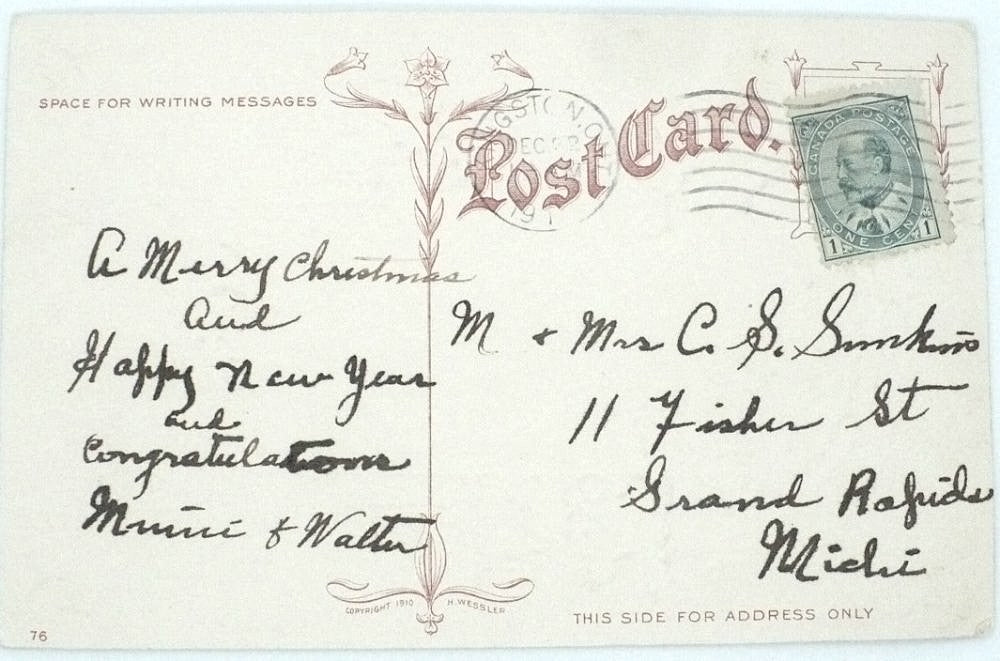 SPACE FOR WRITING MESSAGES
Post Card.
DEC
191
CANADA POSTAGE
1 ONE CENT 1
A Merry Christmas
and
Happy New Year
and
Congratulations
& Walter
M & Mrs C. S.
11 Fisher St
Grand Rapids
Michi
COPYRIGHT 1910 H. WESSLER
THIS SIDE FOR ADDRESS ONLY
76